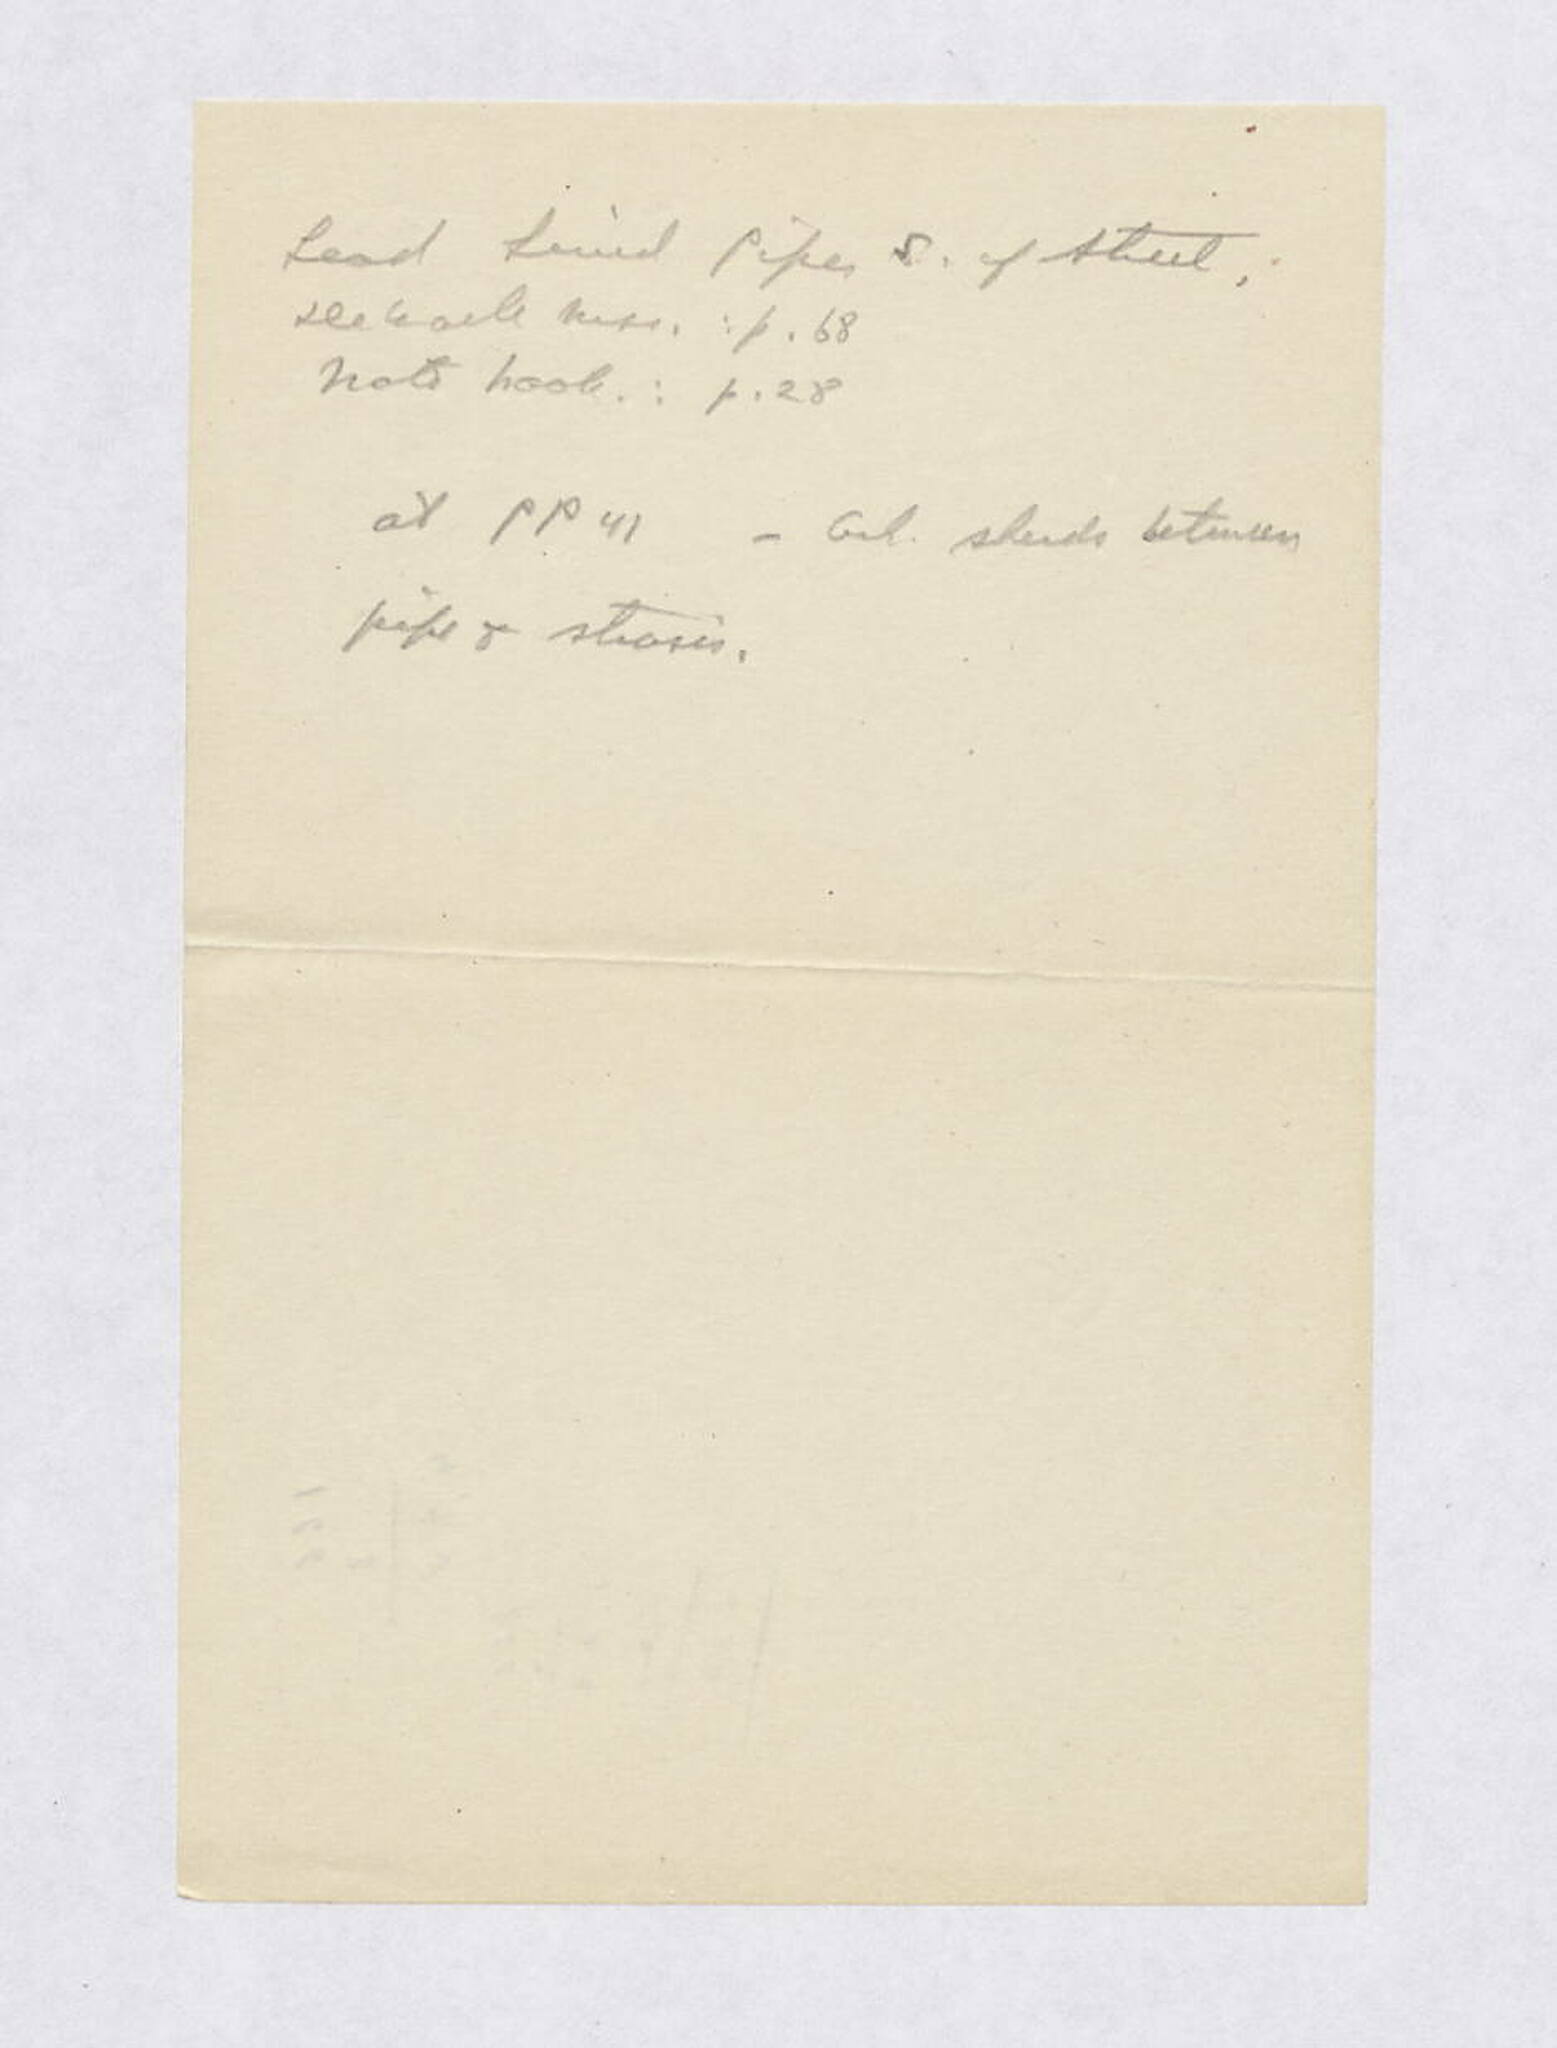 Lead Lined Pipes S. of Street.
p. 68
Note book. : p. 28
at PP 41 - Col. sherds between
pipe & strosis.